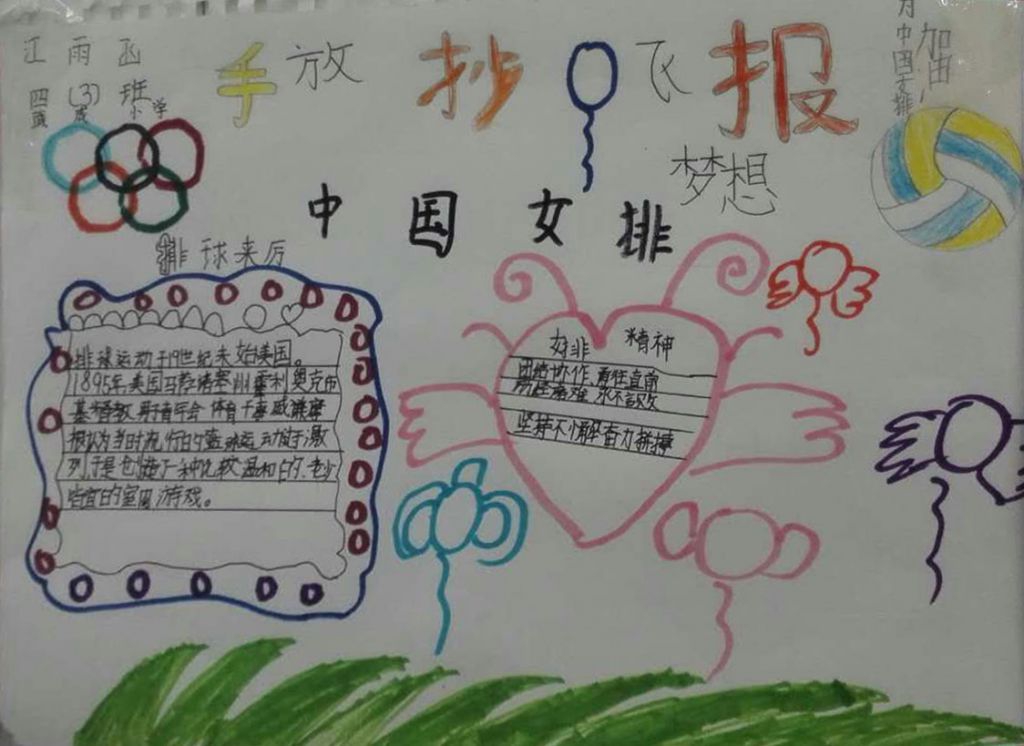 江雨函
四(3)班
小学
手抄报
放飞
梦想
为中国女排
加油!
中国女排
排球来历
排球运动于19世纪末始美国。
1895年美国马萨诸塞州霍利奥克市
基督教男子青年会体育干事威廉摩
根认为当时流行的篮球运动过于激
烈,于是创造了一种比较温和的、老少
皆宜的室内游戏。
女排精神
团结协作 勇往直前
永不言败
坚持不懈奋力拼搏